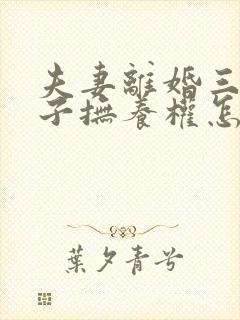 夫妻離婚三
子撫養權怎
葉夕青兮